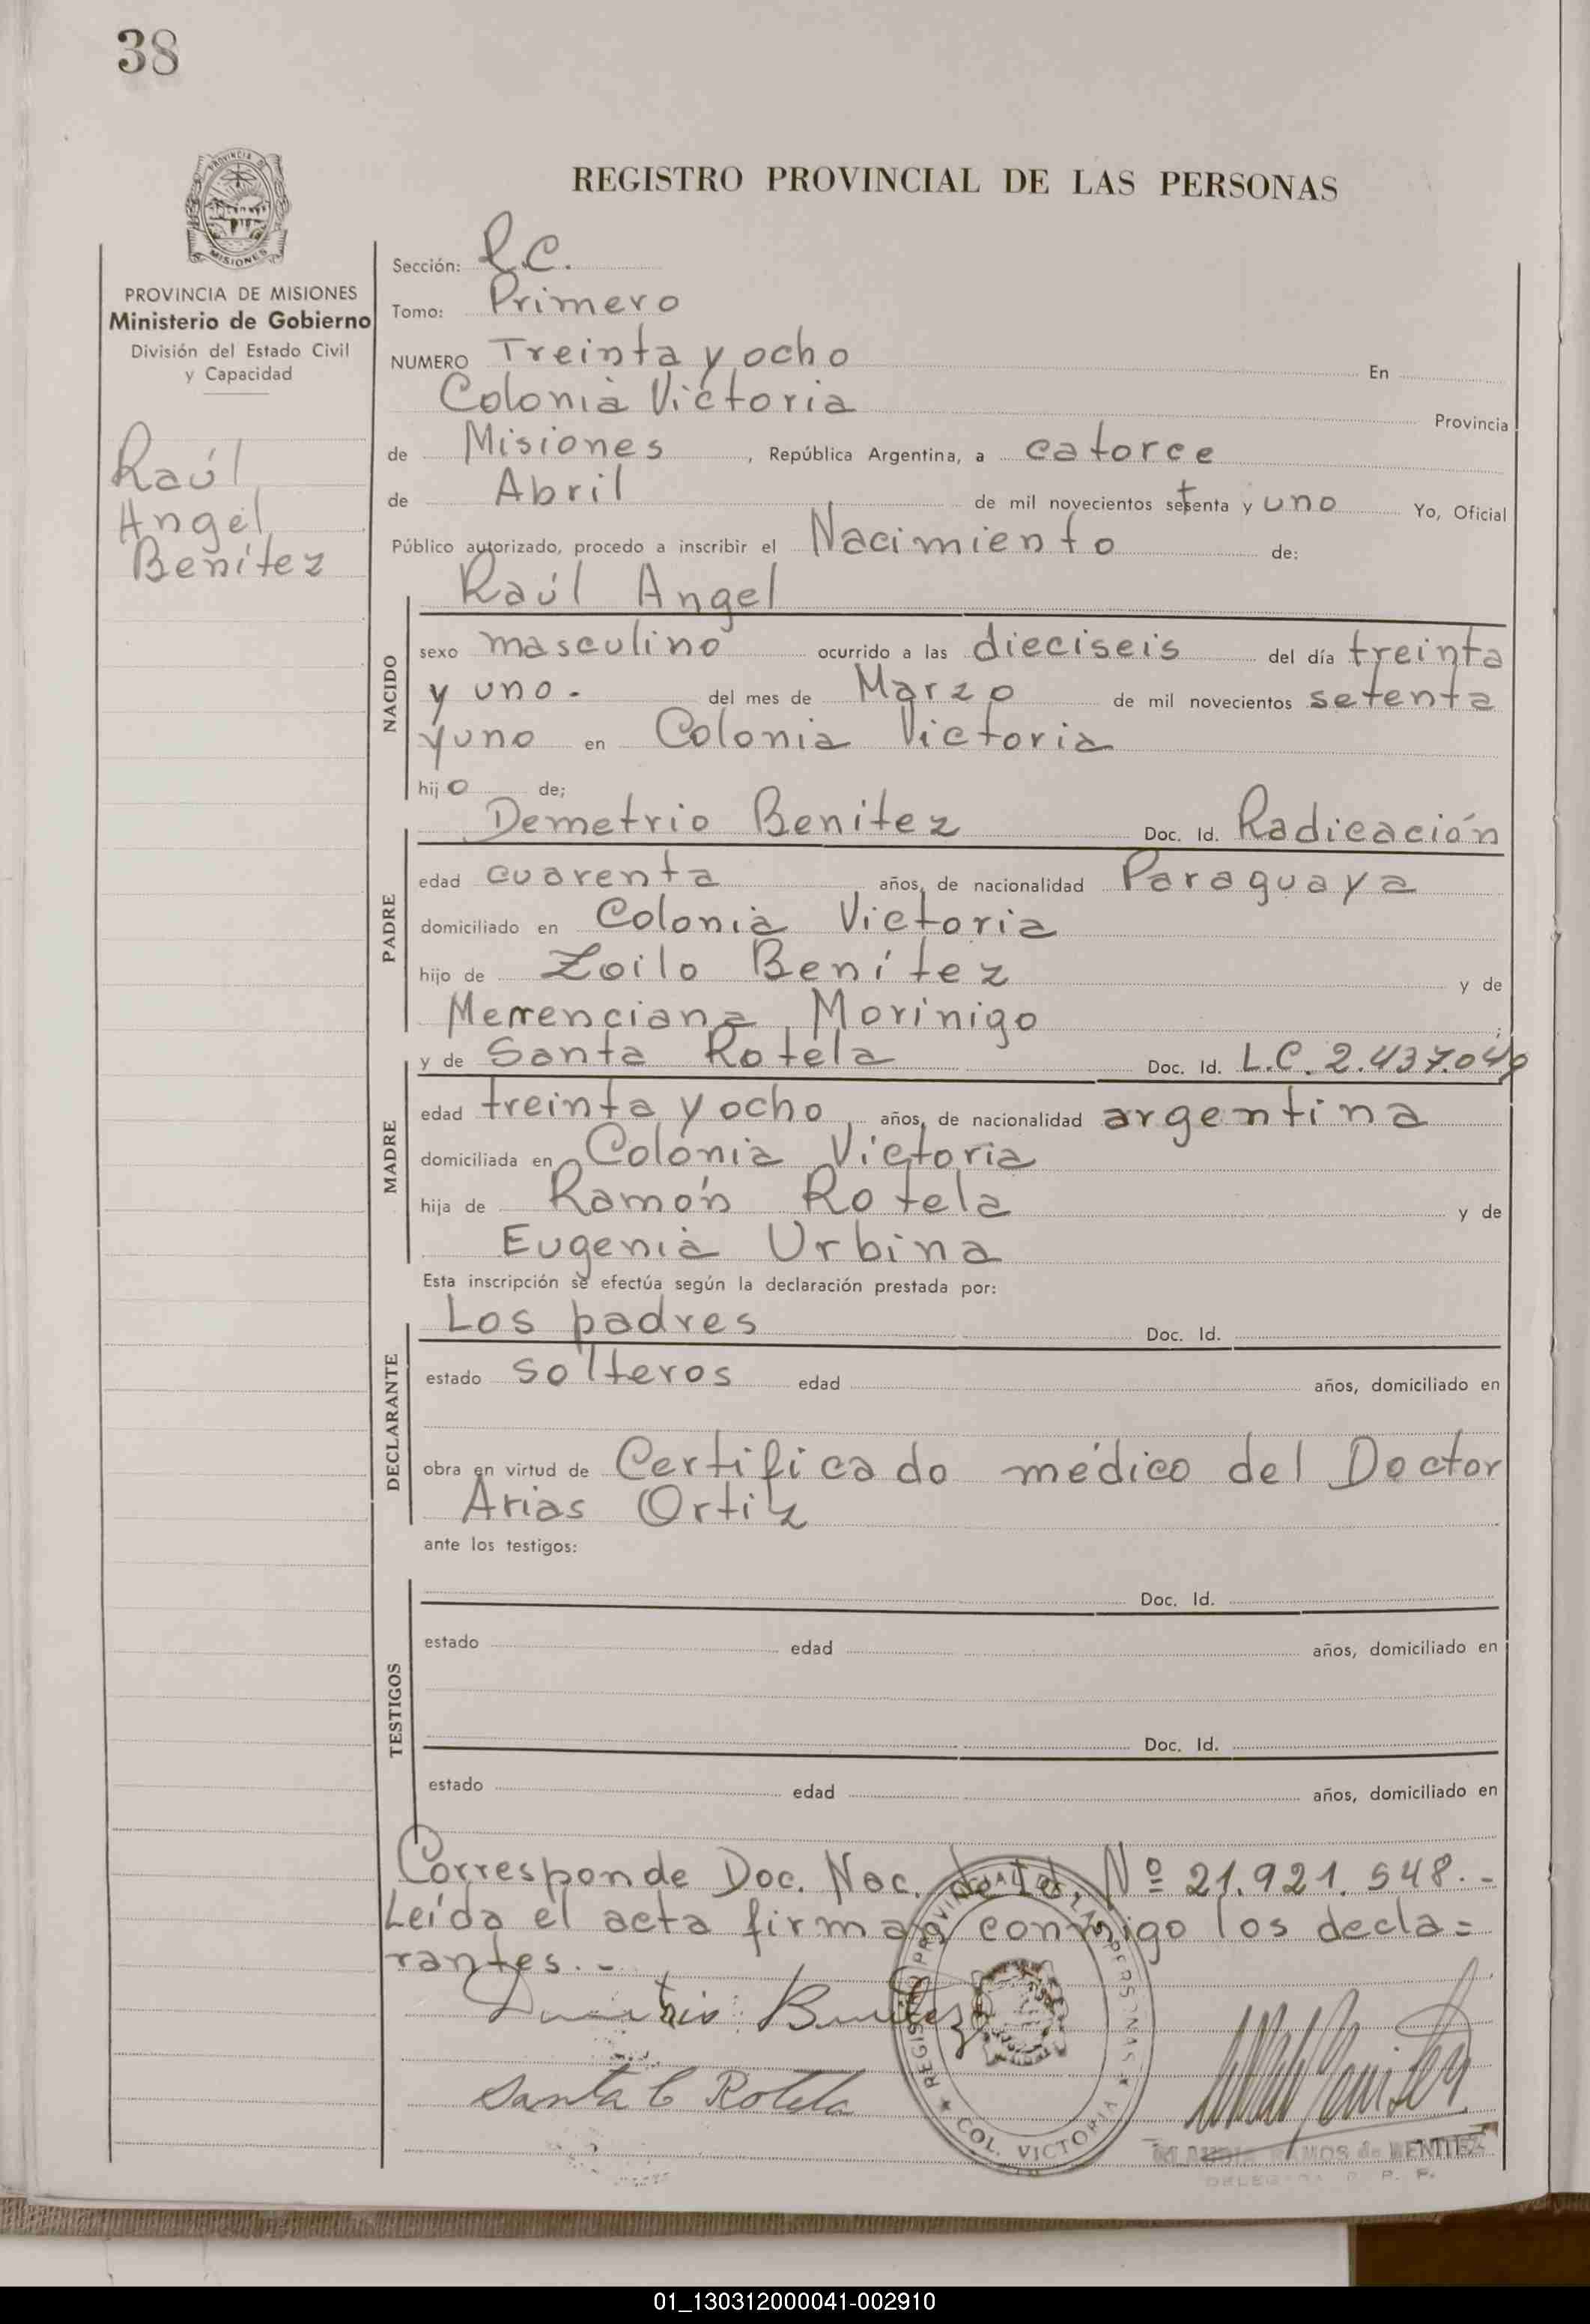 38
PROVINCIA DE MISIONES
Ministerio de Gobierno
División del Estado Civil
y Capacidad
Raúl
Angel
Benítez
REGISTRO PROVINCIAL DE LAS PERSONAS
Sección: R.C.
Tomo: Primero
NUMERO Treinta y ocho En
Colonia Victoria Provincia
de Misiones, República Argentina, a catorce
de Abril de mil novecientos setenta y uno Yo, Oficial
Público autorizado, procedo a inscribir el Nacimiento de:
NACIDO
Raúl Angel
sexo masculino ocurrido a las dieciseis del día treinta
y uno.- del mes de Marzo de mil novecientos setenta
y uno en Colonia Victoria
hijo de;
PADRE
Demetrio Benitez Doc. Id. Radicación
edad cuarenta años, de nacionalidad Paraguaya
domiciliado en Colonia Victoria
hijo de Zoilo Benítez y de
Merenciana Morinigo
MADRE
y de Santa Rotela Doc. Id. L.C. 2.437.049
edad treinta y ocho años, de nacionalidad argentina
domiciliada en Colonia Victoria
hija de Ramón Rotela y de
Eugenia Urbina
Esta inscripción se efectúa según la declaración prestada por:
DECLARANTE
Los padres Doc. Id.
estado solteros edad años, domiciliado en
obra en virtud de Certificado médico del Doctor
Arias Ortiz
ante los testigos:
TESTIGOS
Doc. Id.
estado edad años, domiciliado en
Doc. Id.
estado edad años, domiciliado en
Corresponde Doc. Nac. de Id. Nº 21.921.548.-
Leída el acta firman conmigo los decla=
rantes.-
Demetrio Benitez
Santa C Rotela
REGISTRO PROVINCIAL DE LAS PERSONAS
COL. VICTORIA
RAMOS de BENITEZ
01_130312000041-002910